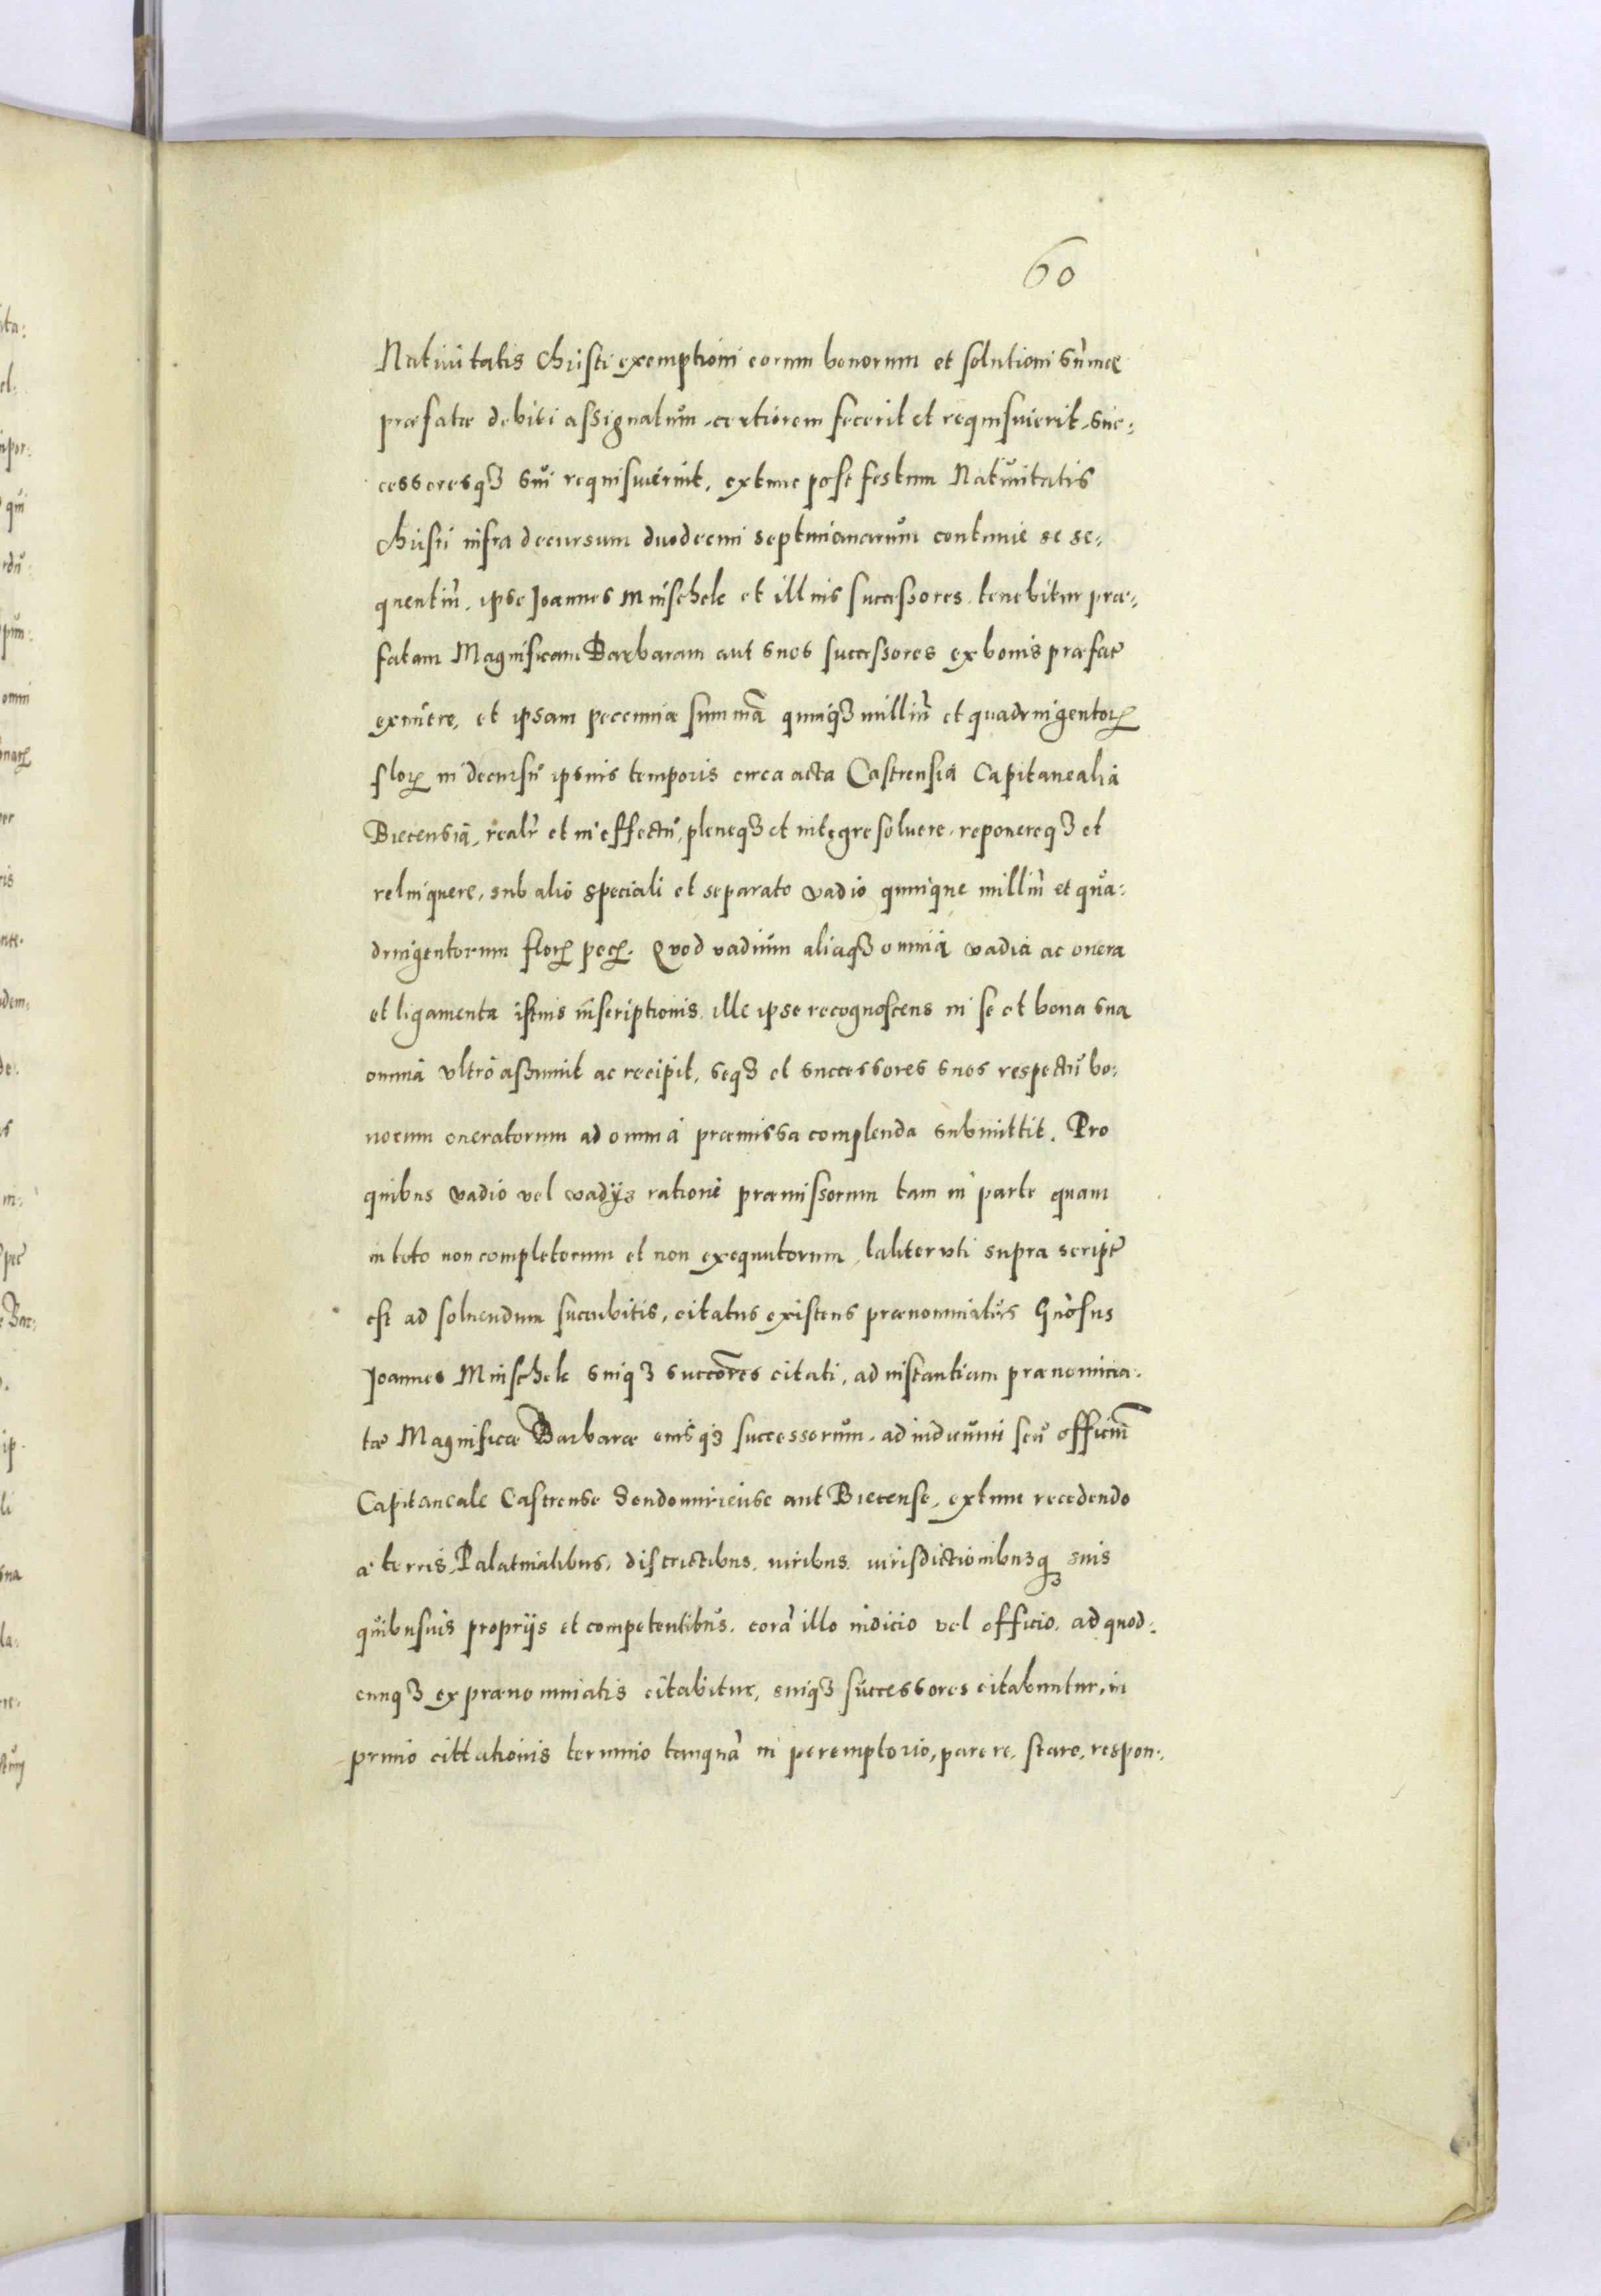 60
Nativitatis Christi exemptioni eorum bonorum et solutioni sum̃æ
præfatæ debiti assignatum, certiorem fecerit et requisiuerit, suc:
cessoresqȝ sui requisiuerint, extunc post festum Natiuitatis
Christi infra decursum duodecim septimanarum continue se se:
quentiũ, ipse Joannes Minschele et illius successores, tenebitur præ:
fatam Magnificam Barbaram aut suos successores ex bonis præfat̃
eximere, et ipsam pecuniæ summã quinqȝ milliũ et quadringentorꝝ
florꝝ in decursu ipsius temporis circa acta Castrensia Capitanealia
Biecensia, realr̃ et in effectu, pleneqȝ et integre soluere, reponereqȝ et
relinquere, sub alio speciali et separato vadio quinque milliũ et qua:
dringentorum florꝝ pecꝝ. Quod vadium aliaqȝ omnia vadia ac onera
et ligamenta istius inscriptionis, ille ipse recognoscens in se et bona sua
omnia ultro assumit ac recipit, seqȝ et successores suos respectu bo:
norum oneratorum ad omnia præmissa complenda submittit. Pro
quibus vadio vel vadijs ratione præmissorum tam in parte quam
in toto non completorum et non exequutorum, taliter uti supra script̃
est ad soluendum succubitis, citatus existens prænominatus Gñosus
Joannes Minschele suiqȝ succõres citati, ad instantiam prænomina:
tæ Magnificæ Barbaræ eiusqȝ successorum, ad iudicium seu officiũ
Capitaneale Castrense Sendomiriense aut Biecense, extunc recedendo
a terris, Palatinatibus, districtibus, iuribus, iurisdictionibusqȝ suis
quibusuis proprijs et competentibus, corã illo iudicio vel officio, ad quod:
cunqȝ ex prænominatis citabitur, suiqȝ successores citabuntur, in
primo cittationis termino tanquã in peremptorio, parere, stare, respon: